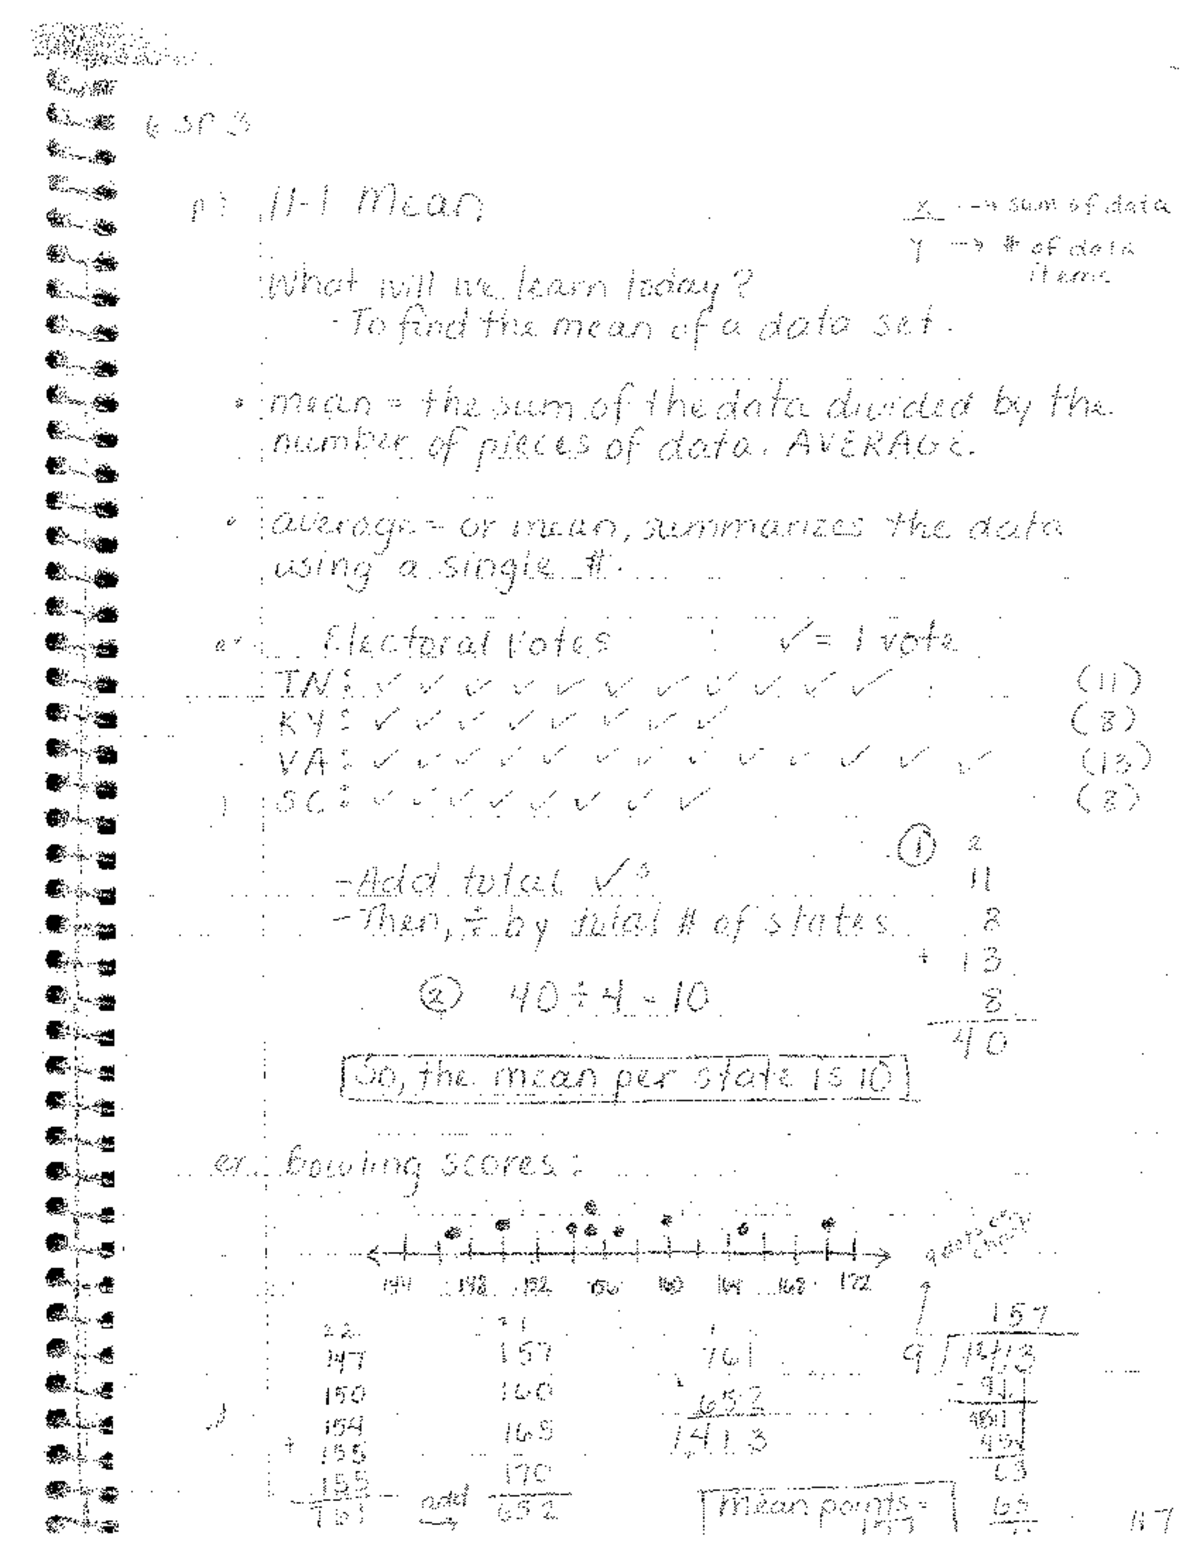 6 SP 3
11-1 Mean
x → sum of data
y → # of data
items
What will we learn today?
- To find the mean of a data set.
• mean = the sum of the data divided by the
number of pieces of data. AVERAGE.
• average = or mean, summarizes the data
using a single #.
ex. Electoral Votes ✓ = 1 vote
IN: ✓ ✓ ✓ ✓ ✓ ✓ ✓ ✓ ✓ ✓ ✓ (11)
KY: ✓ ✓ ✓ ✓ ✓ ✓ ✓ ✓ (8)
VA: ✓ ✓ ✓ ✓ ✓ ✓ ✓ ✓ ✓ ✓ ✓ ✓ ✓ (13)
SC: ✓ ✓ ✓ ✓ ✓ ✓ ✓ ✓ (8)
① 2
- Add total ✓s 11
- Then, ÷ by total # of states 8
+ 13
② 40 ÷ 4 = 10 8
40
So, the mean per state is 10
ex. Bowling scores:
144 148 152 156 160 164 168 172
22 21 1 157
147 157 761 9 1413
150 160 652 - 9
154 165 1,413 45
+ 155 170 63
155 add 652 Mean points = 63
761 157
117